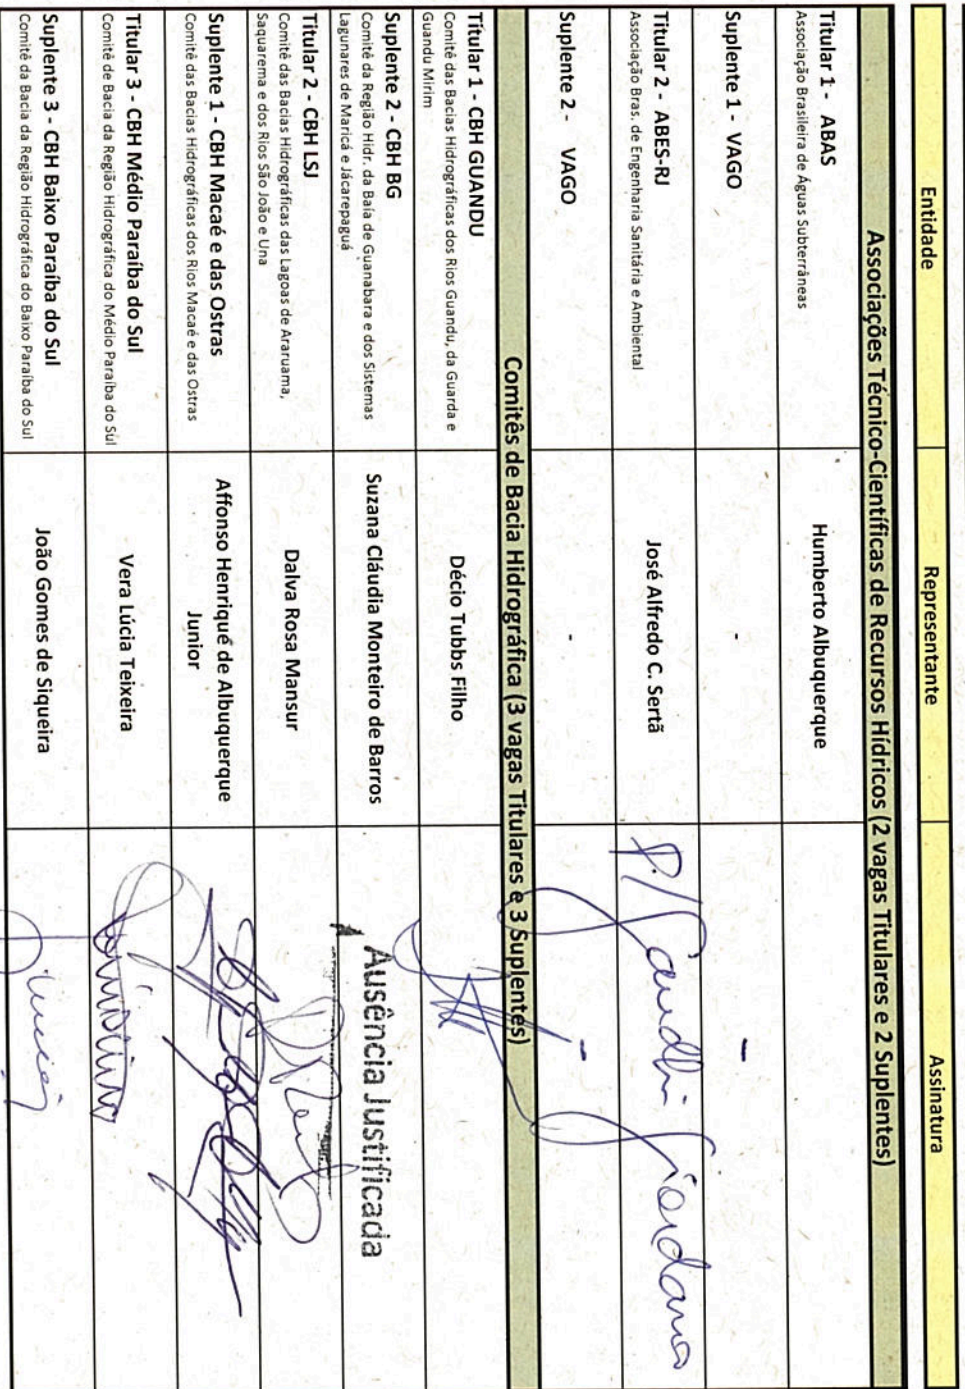 Entidade Representante Assinatura
Associações Técnico-Científicas de Recursos Hídricos (2 vagas Titulares e 2 Suplentes)
Titular 1 - ABAS
Associação Brasileira de Águas Subterrâneas
Humberto Albuquerque
Suplente 1 - VAGO
-
-
Titular 2 - ABES-RJ
Associação Bras. de Engenharia Sanitária e Ambiental
José Alfredo C. Sertã
P/ Giordano
Suplente 2 - VAGO
-
-
Comitês de Bacia Hidrográfica (3 vagas Titulares e 3 Suplentes)
Titular 1 - CBH GUANDU
Comitê das Bacias Hidrográficas dos Rios Guandu, da Guarda e
Guandu Mirim
Décio Tubbs Filho
Suplente 2 - CBH BG
Comitê da Região Hidr. da Baía de Guanabara e dos Sistemas
Lagunares de Maricá e Jácarepaguá
Suzana Cláudia Monteiro de Barros
Ausência Justificada
Titular 2 - CBH LSJ
Comitê das Bacias Hidrográficas das Lagoas de Araruama,
Saquarema e dos Rios São João e Una
Dalva Rosa Mansur
Suplente 1 - CBH Macaé e das Ostras
Comitê das Bacias Hidrográficas dos Rios Macaé e das Ostras
Affonso Henrique de Albuquerque
Junior
Titular 3 - CBH Médio Paraíba do Sul
Comitê de Bacia da Região Hidrográfica do Médio Paraíba do Sul
Vera Lúcia Teixeira
Suplente 3 - CBH Baixo Paraíba do Sul
Comitê da Bacia da Região Hidrográfica do Baixo Paraíba do Sul
João Gomes de Siqueira